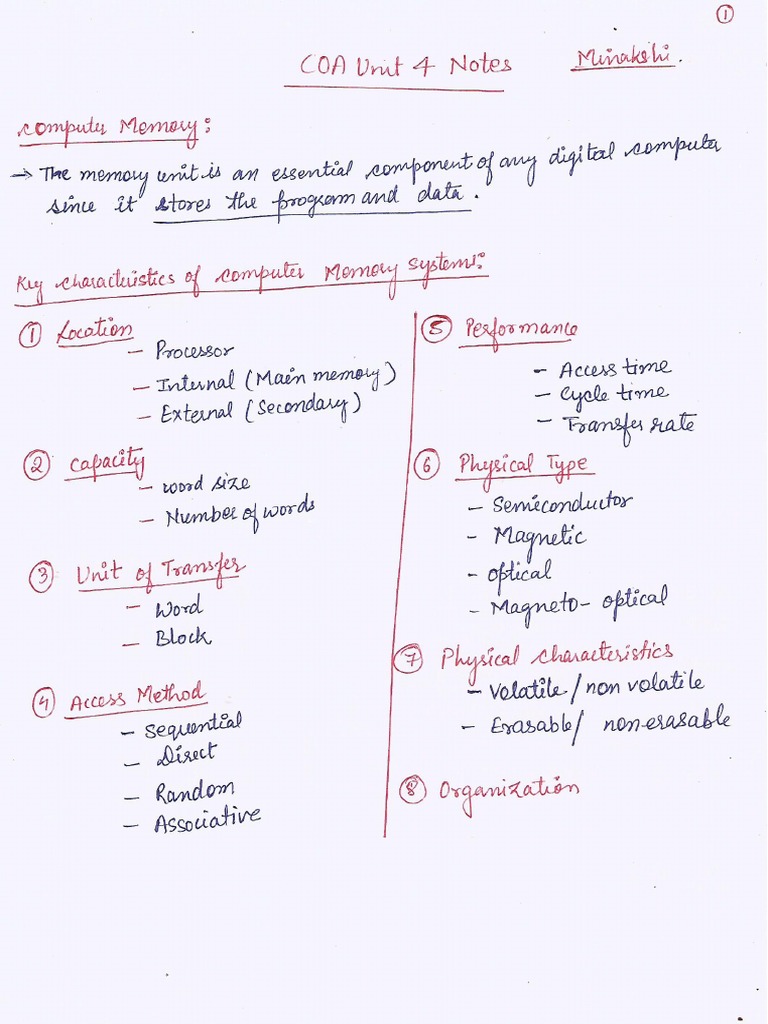 1
COA Unit 4 Notes
Minakshi.
Computer Memory:
→ The memory unit is an essential component of any digital computer
since it stores the program and data.
Key characteristics of computer Memory systems:
① Location
– Processor
– Internal (Main memory)
– External (Secondary)
② Capacity
– word size
– Number of words
③ Unit of Transfer
– Word
– Block
④ Access Method
– Sequential
– Direct
– Random
– Associative
⑤ Performance
– Access time
– Cycle time
– Transfer rate
⑥ Physical Type
– Semiconductor
– Magnetic
– Optical
– Magneto-optical
⑦ Physical characteristics
– Volatile/non volatile
– Erasable/ non-erasable
⑧ Organization